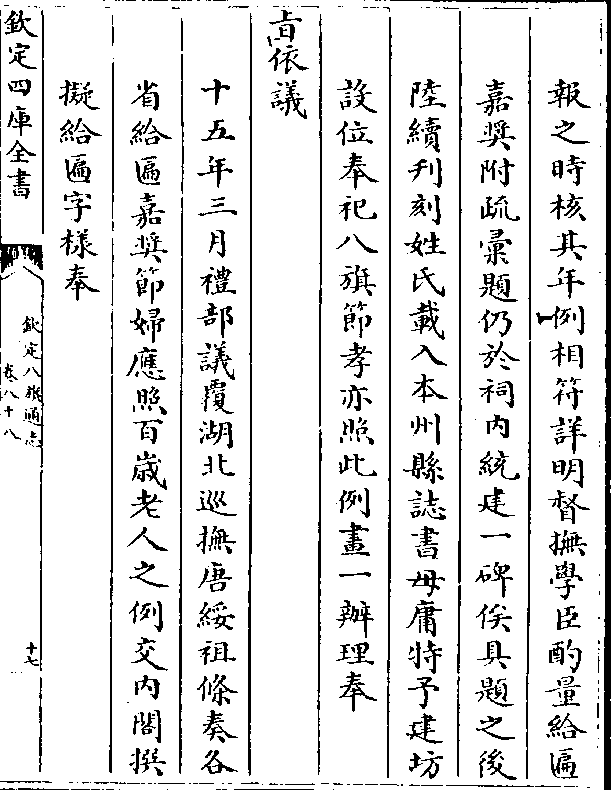 報之時核其年例相符詳明督撫學臣酌量給匾
嘉奬附疏彙題仍於祠内統建一碑俟具題之後
陸續刋刻姓氏載入本州縣誌書毋庸特予建坊
設位奉祀八旗節孝亦照此例畫一辦理奉
㫖依議
十五年三月禮部議覆湖北巡撫唐綏祖條奏各
省給匾嘉奬節婦應照百歲老人之例交内閣撰
擬給匾字様奉
欽定四庫全書
欽定八旗通志
卷八十八
十七